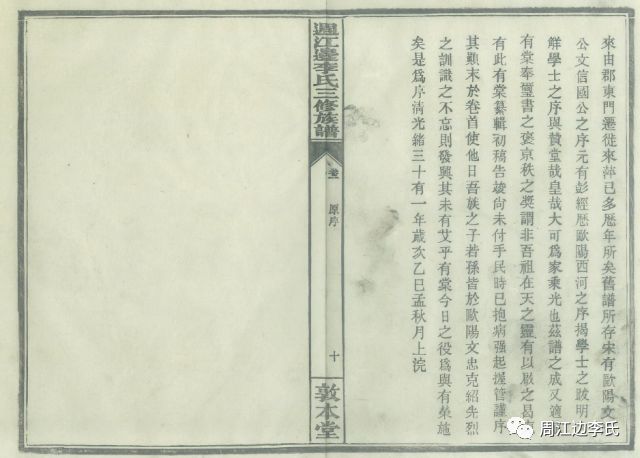 來由郡東門遷徙來萍已多歷年所矣舊譜所存宋有歐陽文
公文信國公之序元有彭經歷歐陽西河之序揭學士之跋明
解學士之序與贊堂哉皇哉大可爲家乘光也茲譜之成又適
有棠奉璽書之褒京秩之奬謂非吾祖在天之靈有以啟之曷
有此有棠纂輯初稿告竣尚未付手民時已抱病强起握管謹序
其顚末於卷首使他日吾族之子若孫皆於歐陽文忠克紹先烈
之訓識之不忘則發興其未有艾乎有棠今日之役爲與有榮施
矣是爲序清光緒三十有一年歲次乙巳孟秋月上浣
週江邊李氏三修族譜
原序
十
敦本堂
周江边李氏